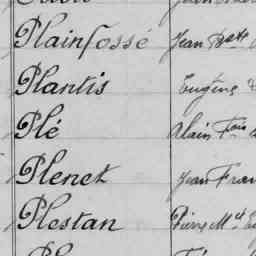 Plainfossé Jean Bte
Plantis Eugène
Plé Alain Fois
Plenet Jean Fran
Plestan Pierre M